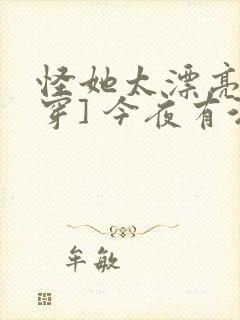 怪她太漂亮
穿] 今夜有
牟敏